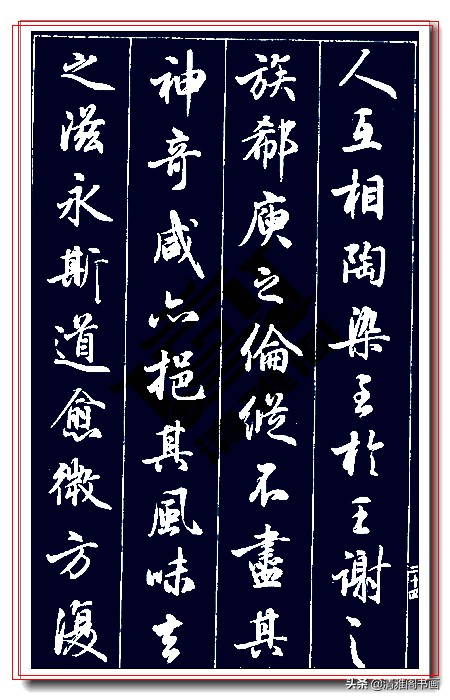 人互相陶染至於王謝之
族郗庾之倫縱不盡其
神奇咸亦挹其風味去
之滋永斯道愈微方復
二十四
头条 @清雅阁书画